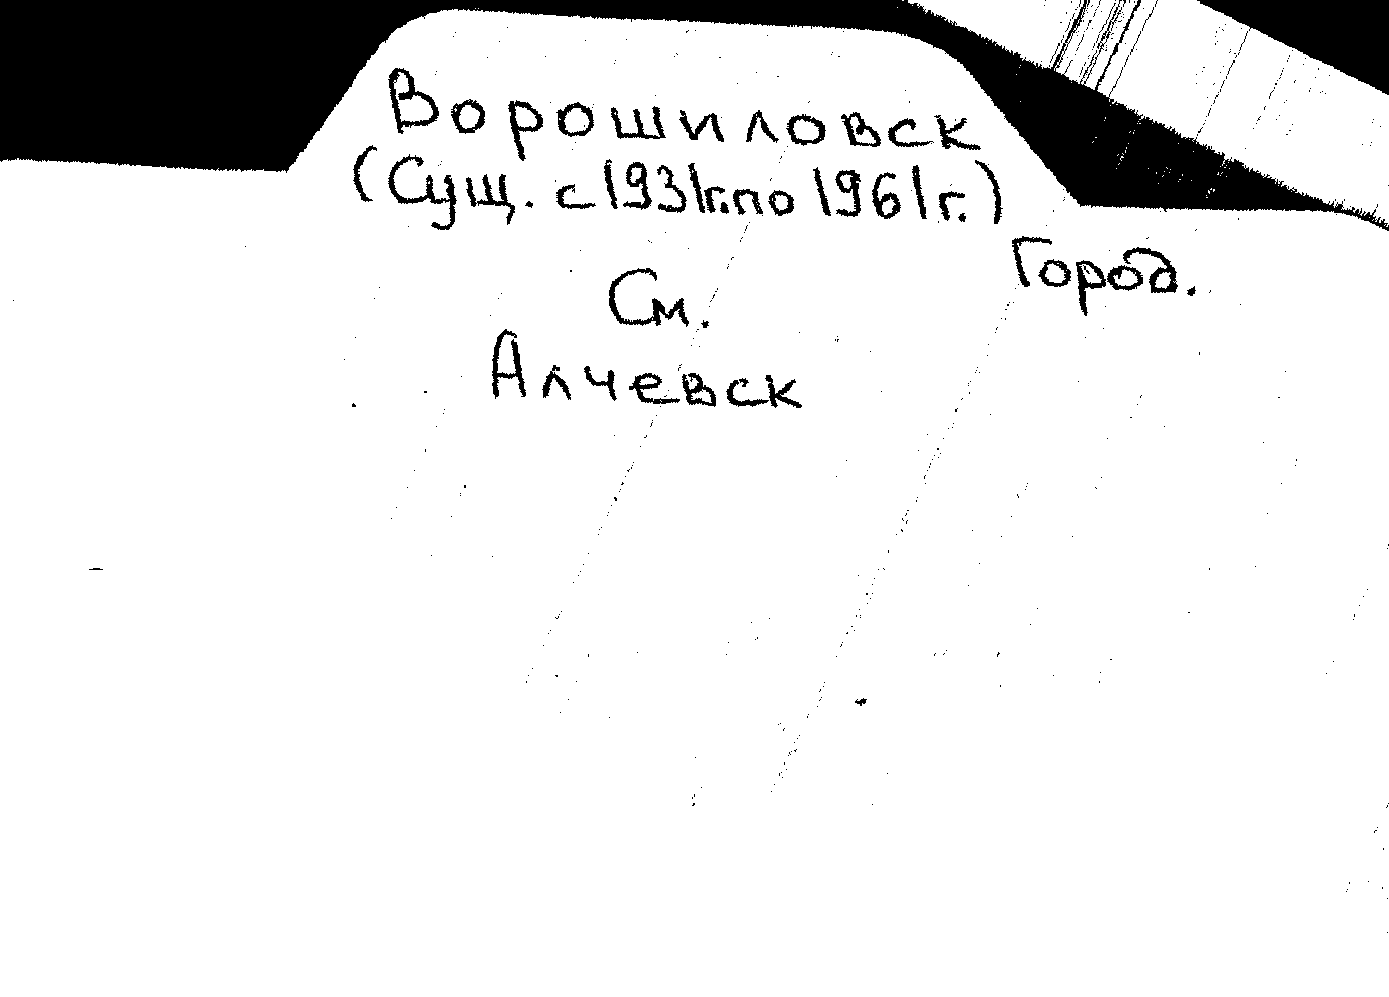 Ворошиловск
(Сущ. с 1931г. по 1961г.)
Город.
См.
Алчевск